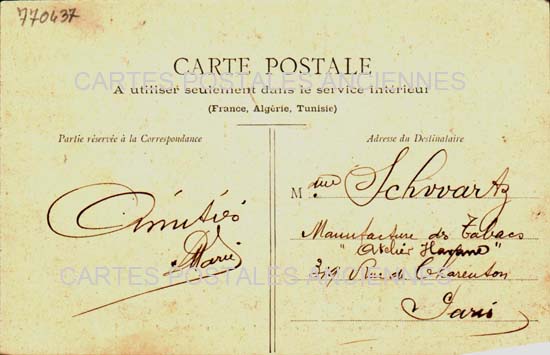 770437
CARTE POSTALE
CARTES POSTALES ANCIENNES
A utiliser seulement dans le service intérieur
(France, Algérie, Tunisie)
Partie réservée à la Correspondance
Amitiés
Marie
CARTES POSTALES ANCIENNES
Adresse du Destinataire
Mme Schwartz
Manufacture de Tabacs
"Atelier Havane"
319 Rue de Charenton
Paris